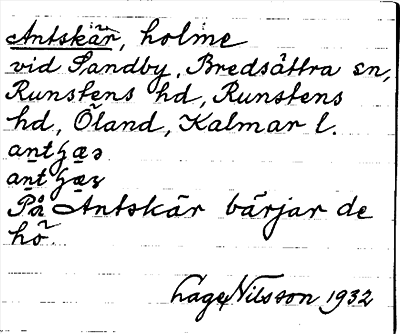 Antskär, holme
vid Sandby, Bredsättra sn,
Runstens hd, Runstens
hd, Öland, Kalmar l.
På Antskär bärjar de
hö.
Lage Nilsson 1932